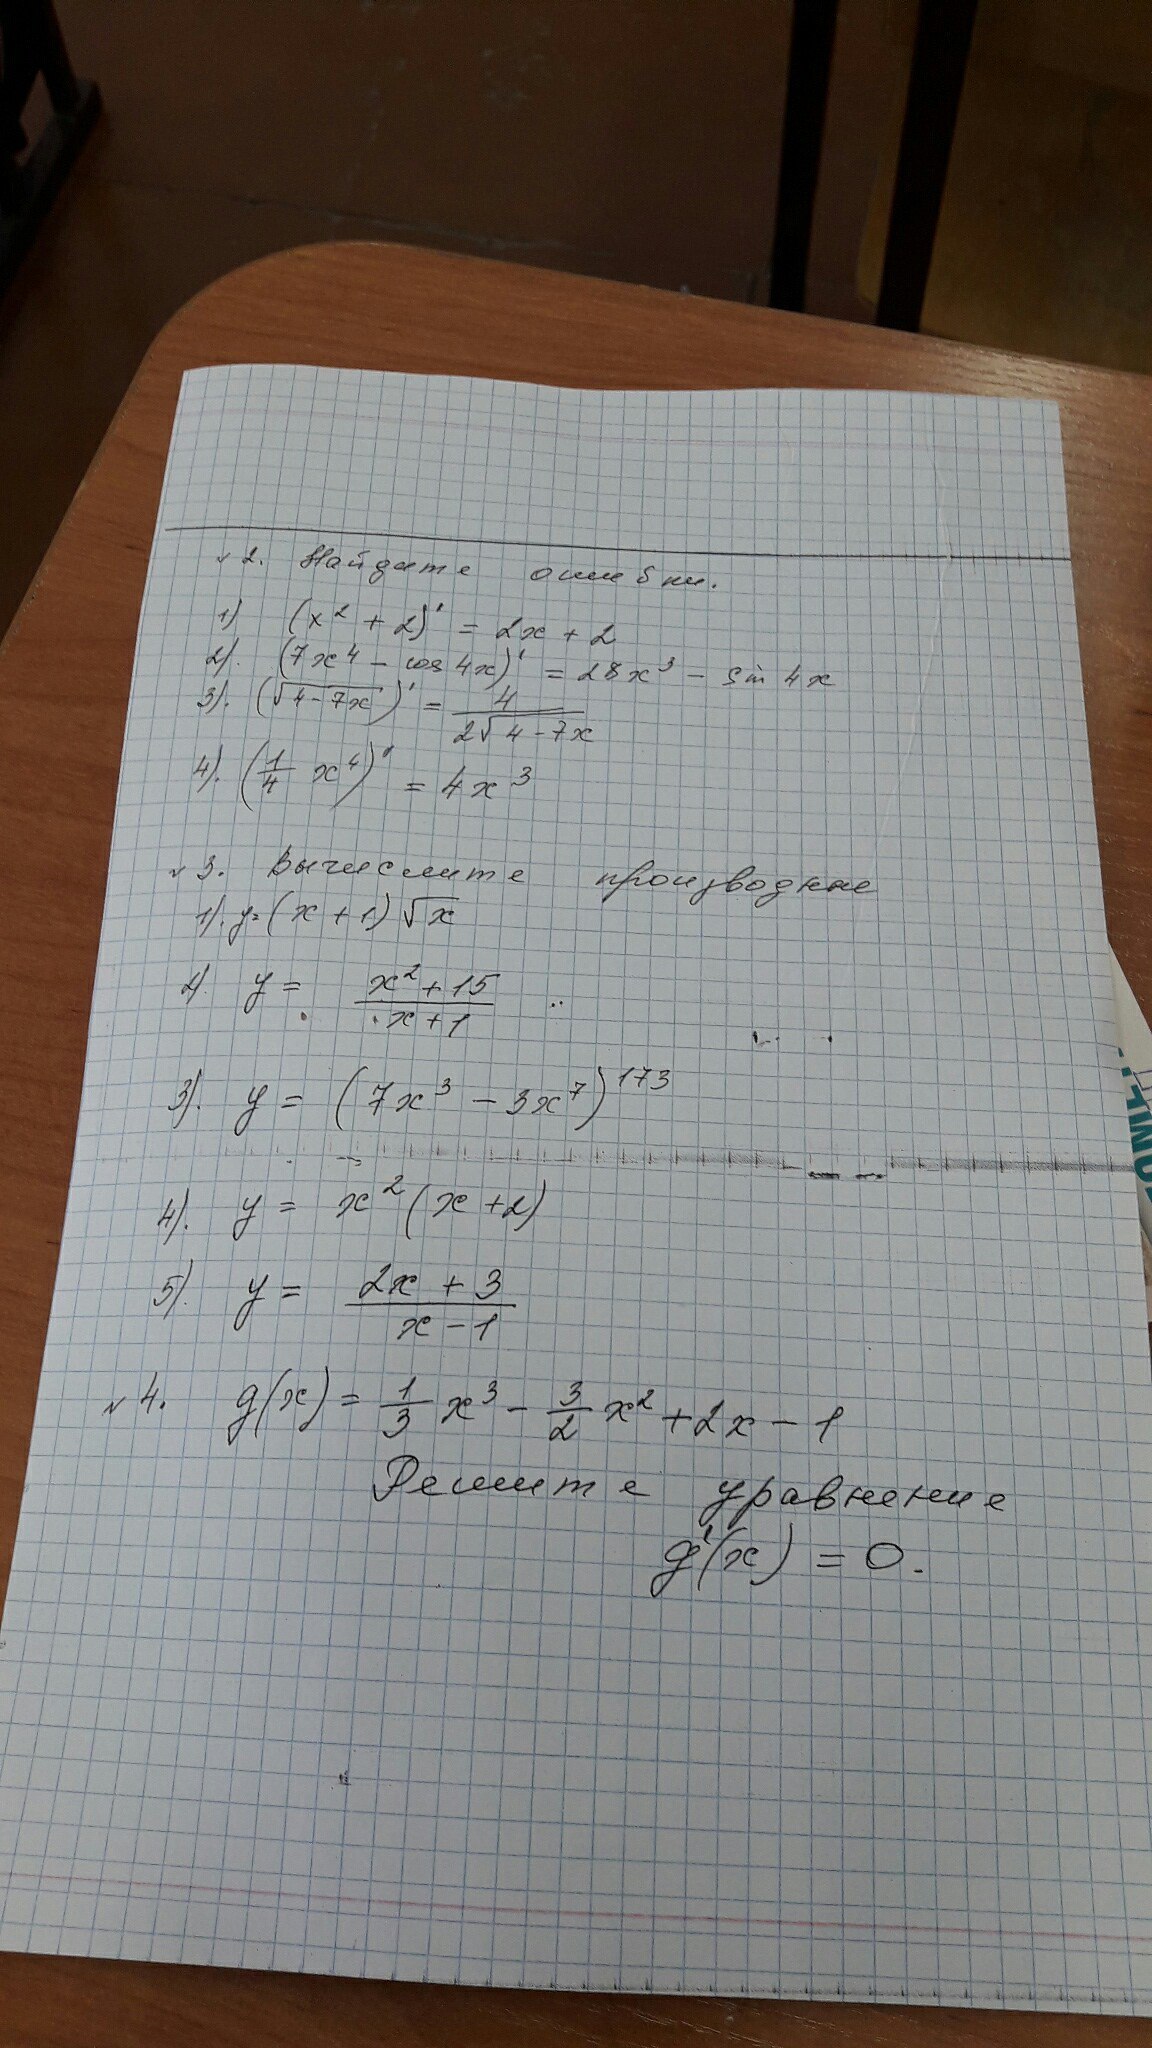 №2. Найдите ошибки.
1) (x² + 2)' = 2x + 2
2). (7x⁴ - cos 4x)' = 28x³ - sin 4x
3). (√(4-7x))' = 4/(2√(4-7x))
4). (1/4 x⁴)' = 4x³
№3. Вычислите производные
1). y = (x + 1)√x
2). y = (x² + 15)/(x + 1)
3). y = (7x³ - 3x⁷)¹⁷³
4). y = x²(x + 2)
5). y = (2x + 3)/(x - 1)
№4. g(x) = 1/3 x³ - 3/2 x² + 2x - 1
Решите уравнение
g'(x) = 0.